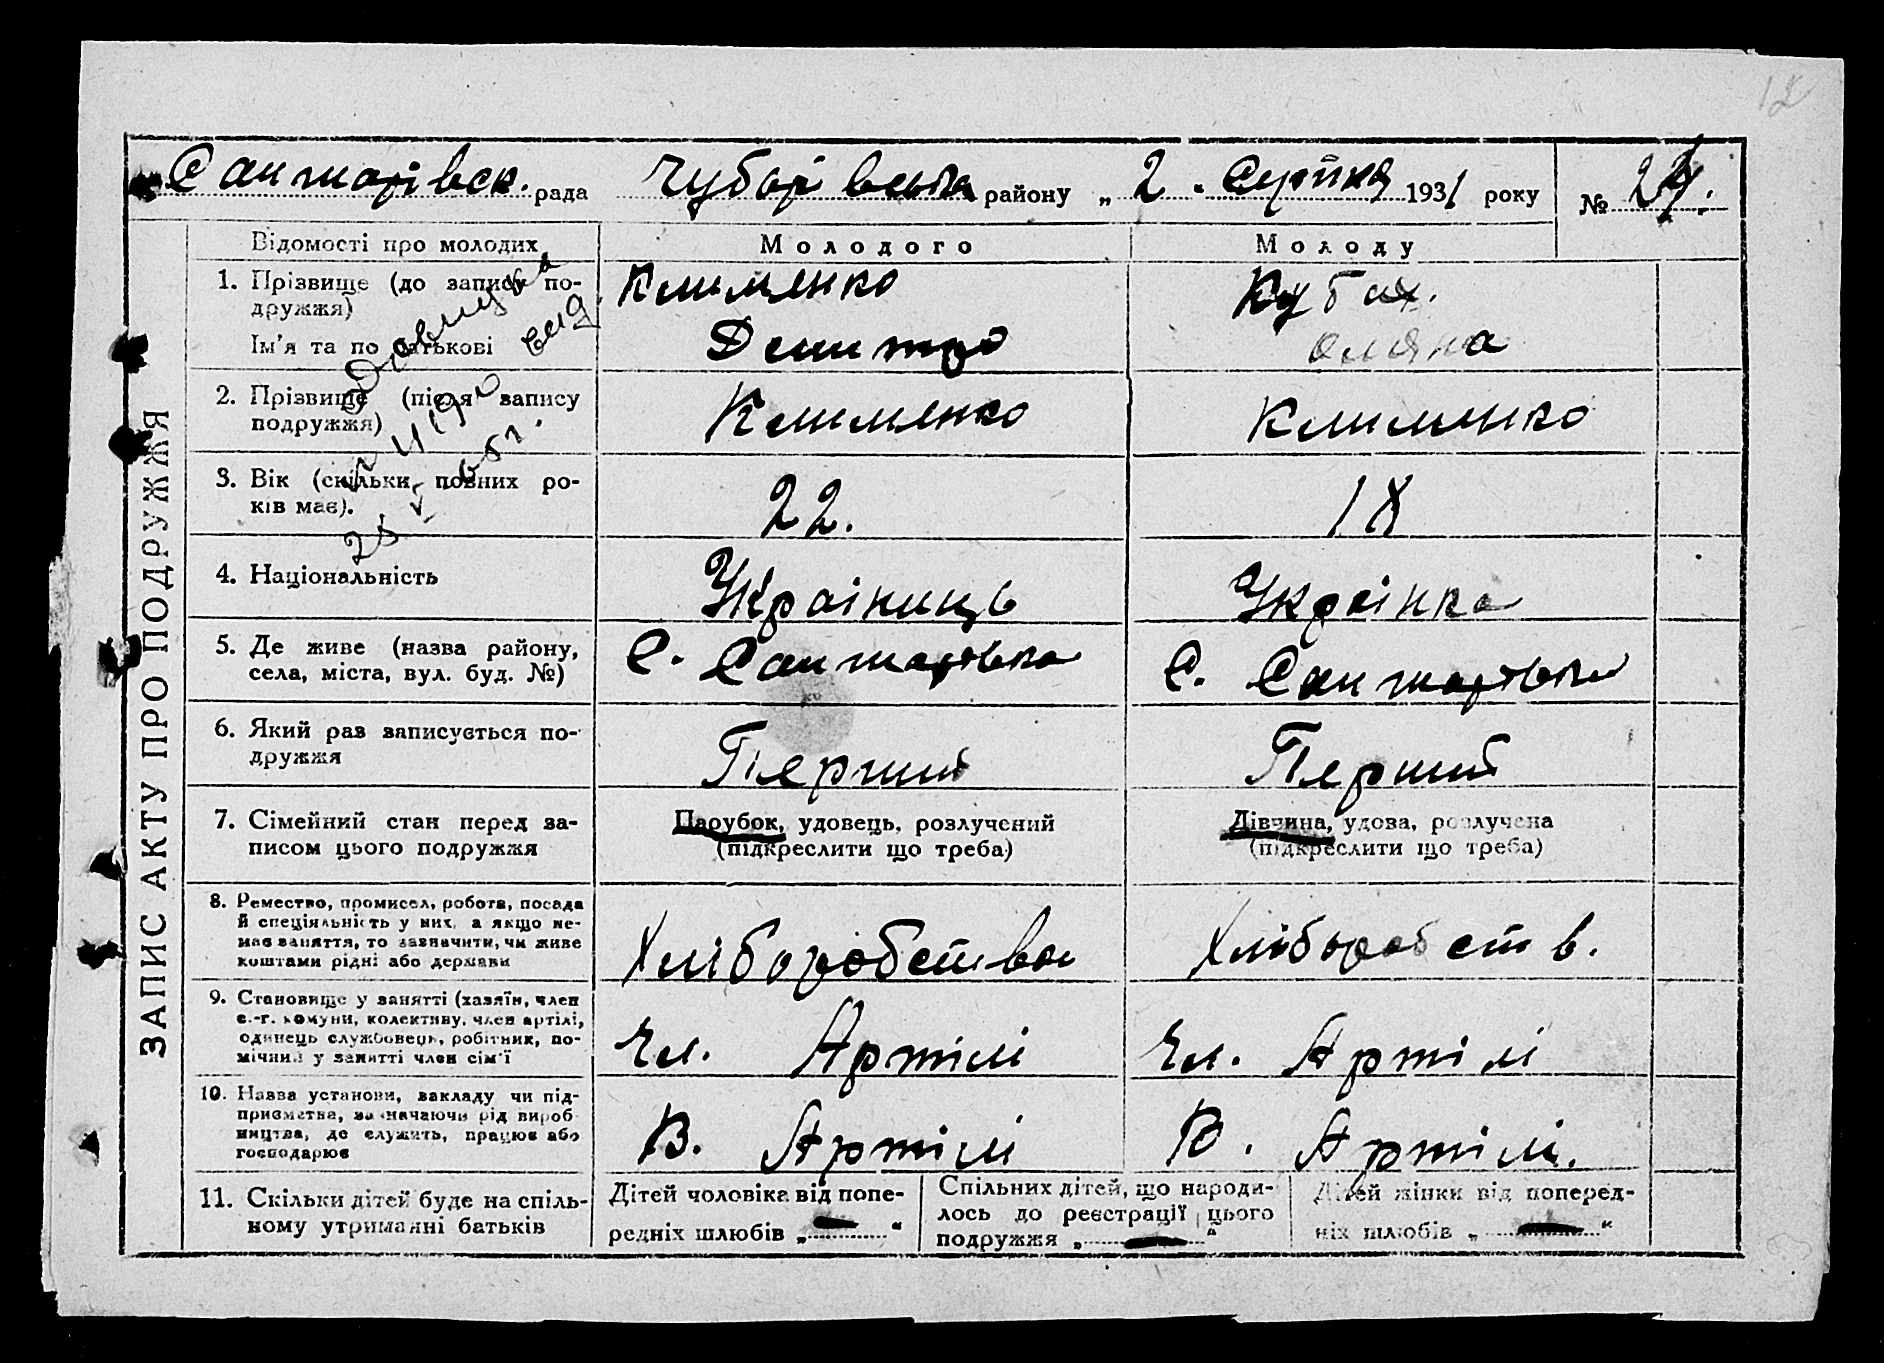 12
Санжарівск. рада Чубарівська району „ 2 . Серпня 1931 року № 24.
ЗАПИС АКТУ ПРО ПОДРУЖЖЯ
Відомості про молодих Молодого Молоду
1. Прізвище (до запису по-
дружжя)
Клименко Кубах.
Ім'я та по батькові
Демитро Оляна
2. Прізвище (після запису
подружжя)
Клименко Клименко
3. Вік (скільки повних ро-
ків має).
22. 18
4. Національність
Украінниць Украінка
5. Де живе (назва району,
села, міста, вул. буд. №)
С. Санжарівка С. Санжарівка
6. Який раз записується по-
дружжя
Перший Перший
7. Сімейний стан перед за-
писом цього подружжя
Парубок, удовець, розлучений
(підкреслити що треба)
Дівчина, удова, розлучена
(підкреслити що треба)
8. Ремество, промисел, робота, посада
й спеціяльність у них, а якщо не-
має заняття, то зазначити, чи живе
коштами рідні або держави
Хліборобства Хліборобств.
9. Становище у занятті (хазяїн, член
с.-г. комуни, колективу, член артілі,
одинець службовець, робітник, по-
мічний у занятті член сім'ї
Чл. Артілі Чл. Артілі
10. Назва установи, закладу чи під-
приємства, зазначаючи рід вироб-
ництва, де служить, працює або
господарює
В. Артілі В. Артілі.
11. Скільки дітей буде на спіль-
ному утриманні батьків
Дітей чоловіка від попе-
редніх шлюбів „ — “
Спільних дітей, що народи-
лось до реєстрації цього
подружжя „ — “
Дітей жінки від поперед-
ніх шлюбів „ — “